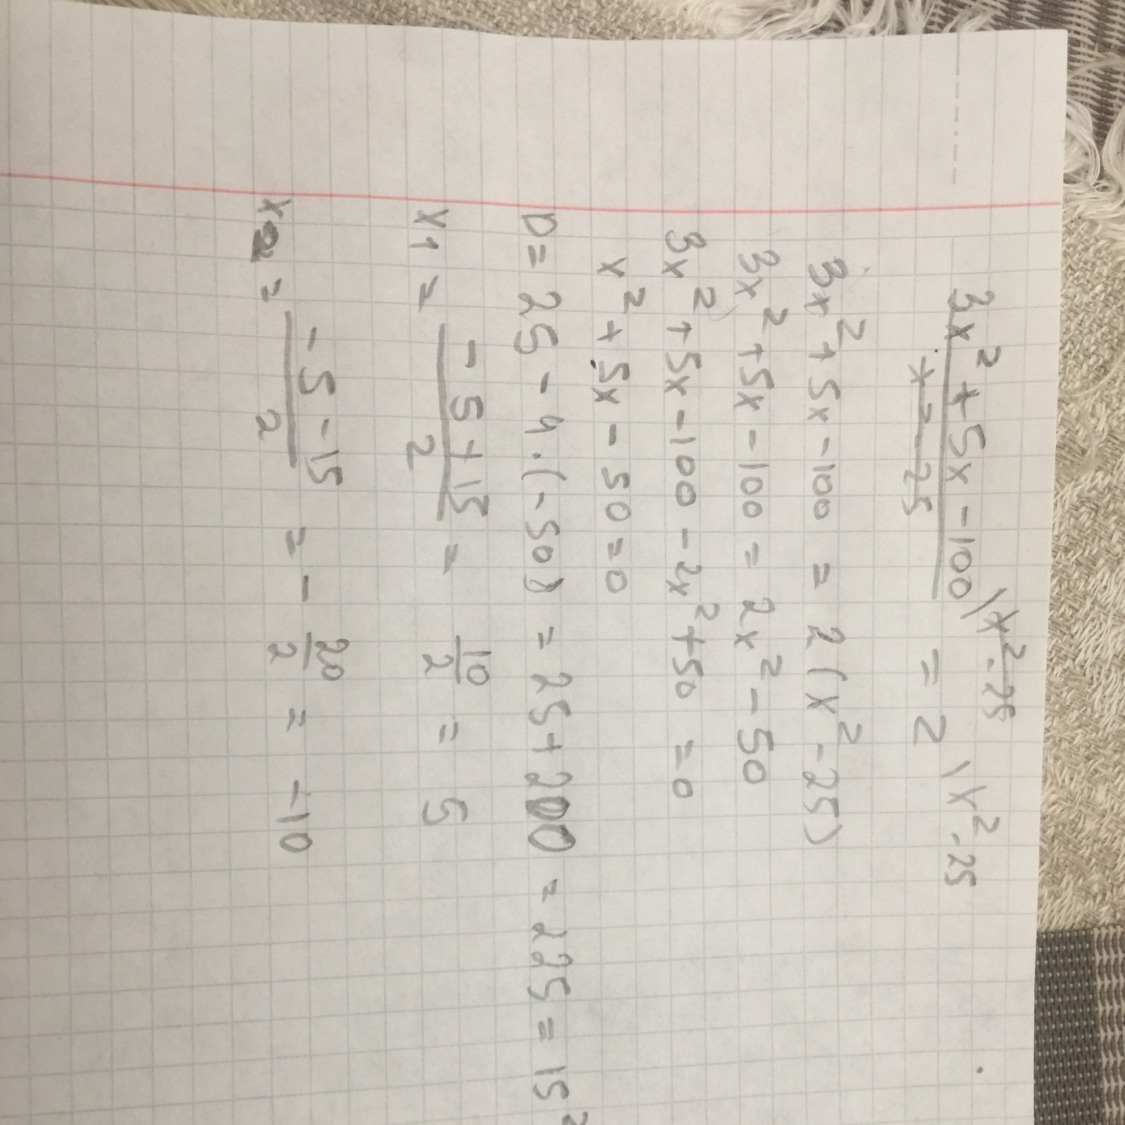 3x² + 5x - 100 \x² - 25
x² - 25 = 2 \x² - 25
3x² + 5x - 100 = 2(x² - 25)
3x² + 5x - 100 = 2x² - 50
3x² + 5x - 100 - 2x² + 50 = 0
x² + 5x - 50 = 0
D = 25 - 4·(-50) = 25 + 200 = 225 = 15²
x1 = -5+15/2 = 10/2 = 5
x2 = -5-15/2 = -20/2 = -10